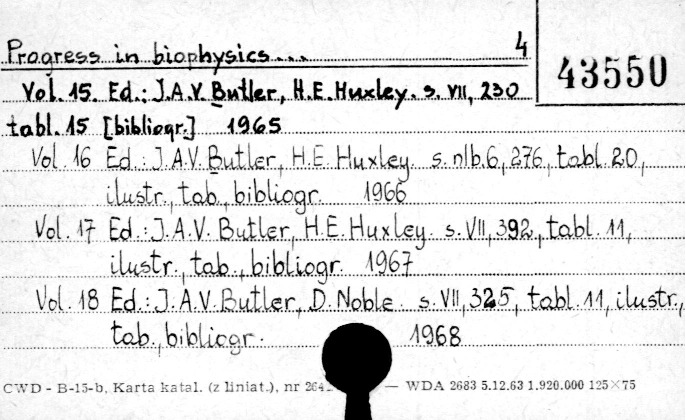 Progress in biophysics... 4
43550
Vol. 15. Ed.: J.A.V. Butler, H.E. Huxley. s. VII, 230
tabl. 15 [bibliogr.] 1965
Vol. 16 Ed.: J.A.V. Butler, H.E. Huxley. s. nlb. 6, 276, tabl. 20,
ilustr., tab., bibliogr. 1966
Vol. 17 Ed.: J.A.V. Butler, H.E. Huxley. s. VII, 392, tabl. 11,
ilustr., tab., bibliogr. 1967
Vol. 18 Ed.: J.A.V. Butler, D. Noble. s. VII, 325, tabl. 11, ilustr.,
tab., bibliogr. 1968
CWD - B-15-b, Karta katal. (z liniat.), nr — WDA 2683 5.12.63 1.920.000 125×75